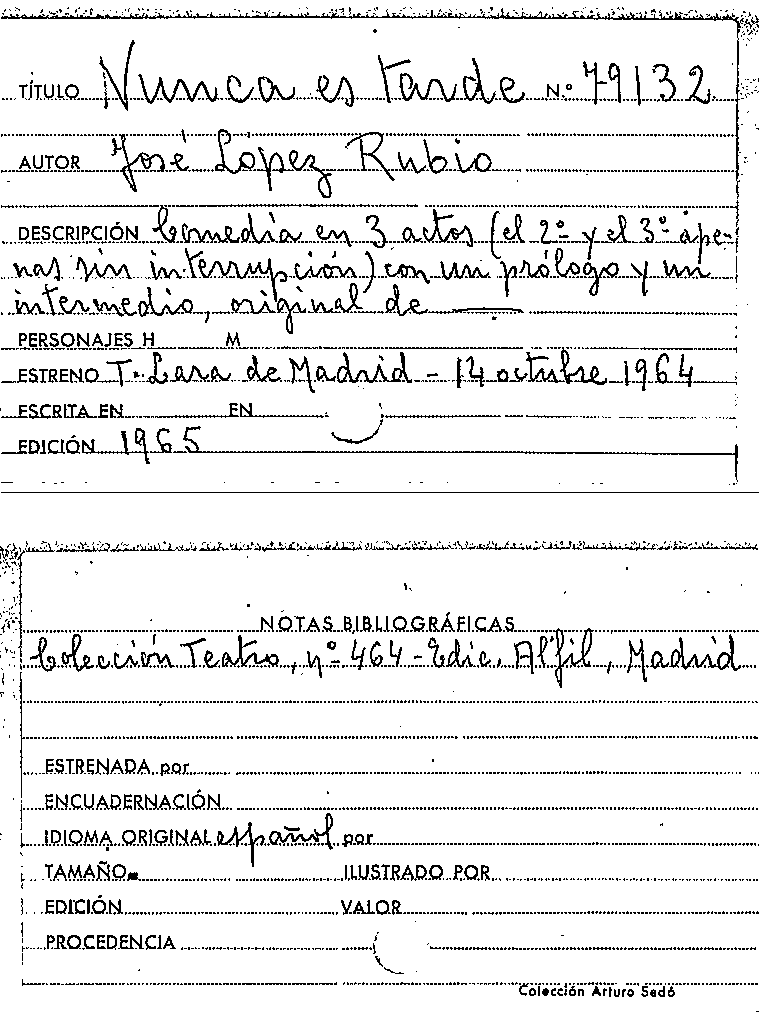 TÍTULO Nunca es tarde N.º 79132
AUTOR José López Rubio
DESCRIPCIÓN Comedia en 3 actos (el 2º y el 3º ape-
nas sin interrupción) con un prólogo y un
intermedio, original de ——
PERSONAJES H M
ESTRENO T. Lara de Madrid - 14 octubre 1964
ESCRITA EN EN
EDICIÓN 1965
NOTAS BIBLIOGRÁFICAS
Colección Teatro, nº 464 - Edic. Alfil, Madrid
ESTRENADA por
ENCUADERNACIÓN
IDIOMA ORIGINAL español por
TAMAÑO ILUSTRADO POR
EDICIÓN VALOR
PROCEDENCIA
Colección Arturo Sedó